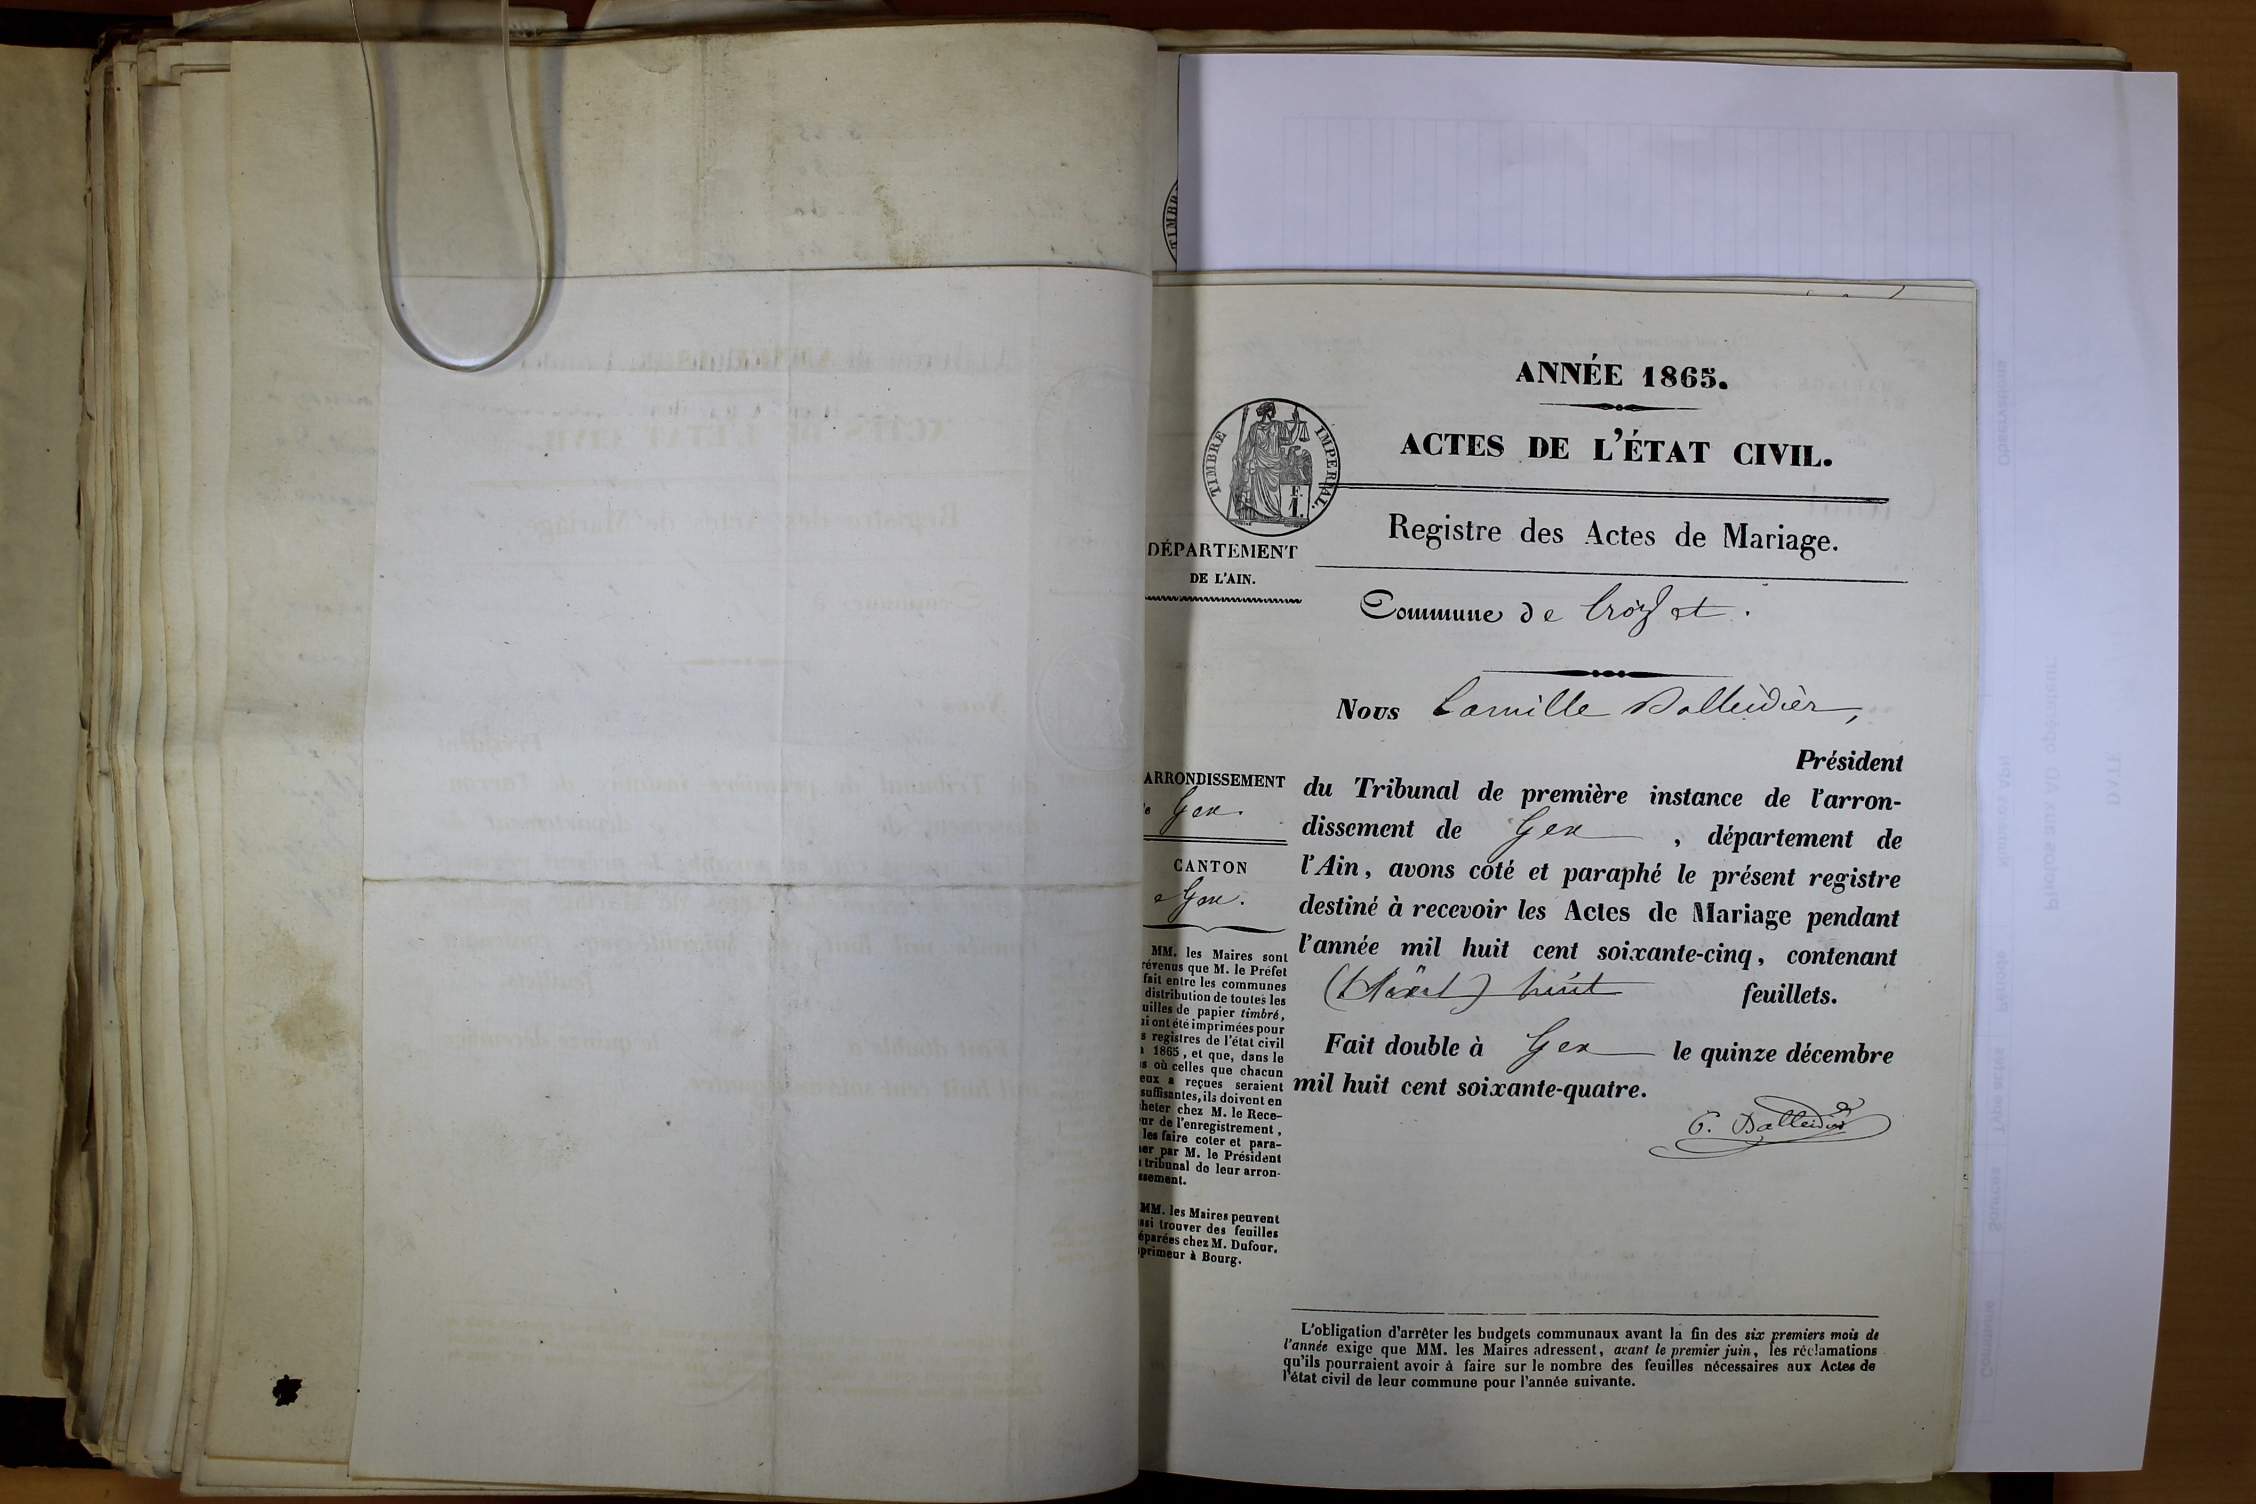 ANNÉE 1865.
ACTES DE L'ÉTAT CIVIL.
TIMBRE IMPERIAL.
F.
1.
Registre des Actes de Mariage.
DÉPARTEMENT
DE L'AIN.
Commune de Crozet.
Nous Camille Balleidier,
Président
ARRONDISSEMENT
e Gex.
du Tribunal de première instance de l'arron-
dissement de Gex, département de
CANTON
e Gex.
l'Ain, avons coté et paraphé le présent registre
destiné à recevoir les Actes de Mariage pendant
l'année mil huit cent soixante-cinq, contenant
huit feuillets.
Fait double à Gex le quinze décembre
mil huit cent soixante-quatre.
C. Balleidier
MM. les Maires sont
révenus que M. le Préfet
fait entre les communes
distribution de toutes les
uilles de papier timbré,
ui ont été imprimées pour
s registres de l'état civil
1865, et que, dans le
s où celles que chacun
eux a reçues seraient
suffisantes, ils doivent en
heter chez M. le Rece-
ur de l'enregistrement,
les faire coter et para-
her par M. le Président
tribunal de leur arron-
ssement.
MM. les Maires peuvent
ssi trouver des feuilles
éparées chez M. Dufour,
primeur à Bourg.
L'obligation d'arrêter les budgets communaux avant la fin des six premiers mois de
l'année exige que MM. les Maires adressent, avant le premier juin, les réclamations
qu'ils pourraient avoir à faire sur le nombre des feuilles nécessaires aux Actes de
l'état civil de leur commune pour l'année suivante.
TIMBR